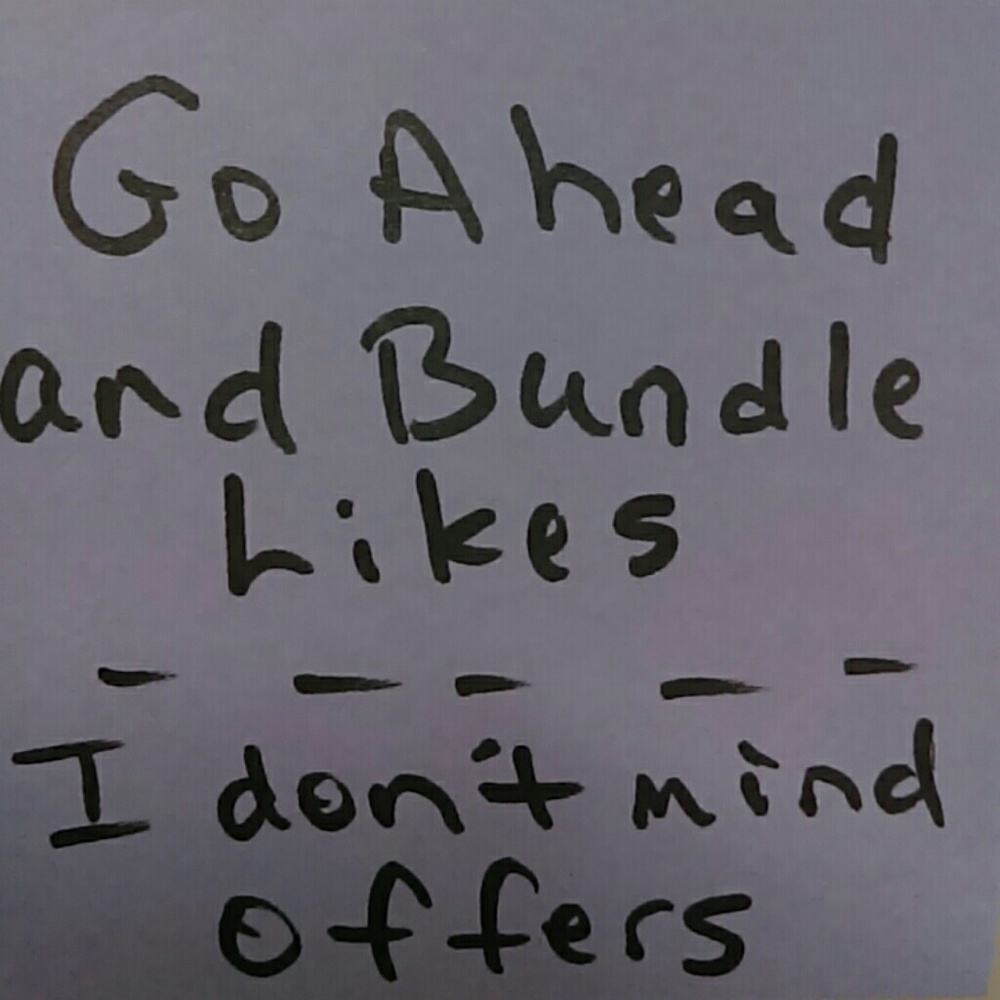 Go Ahead
and Bundle
Likes
- - - - -
I don't mind
offers